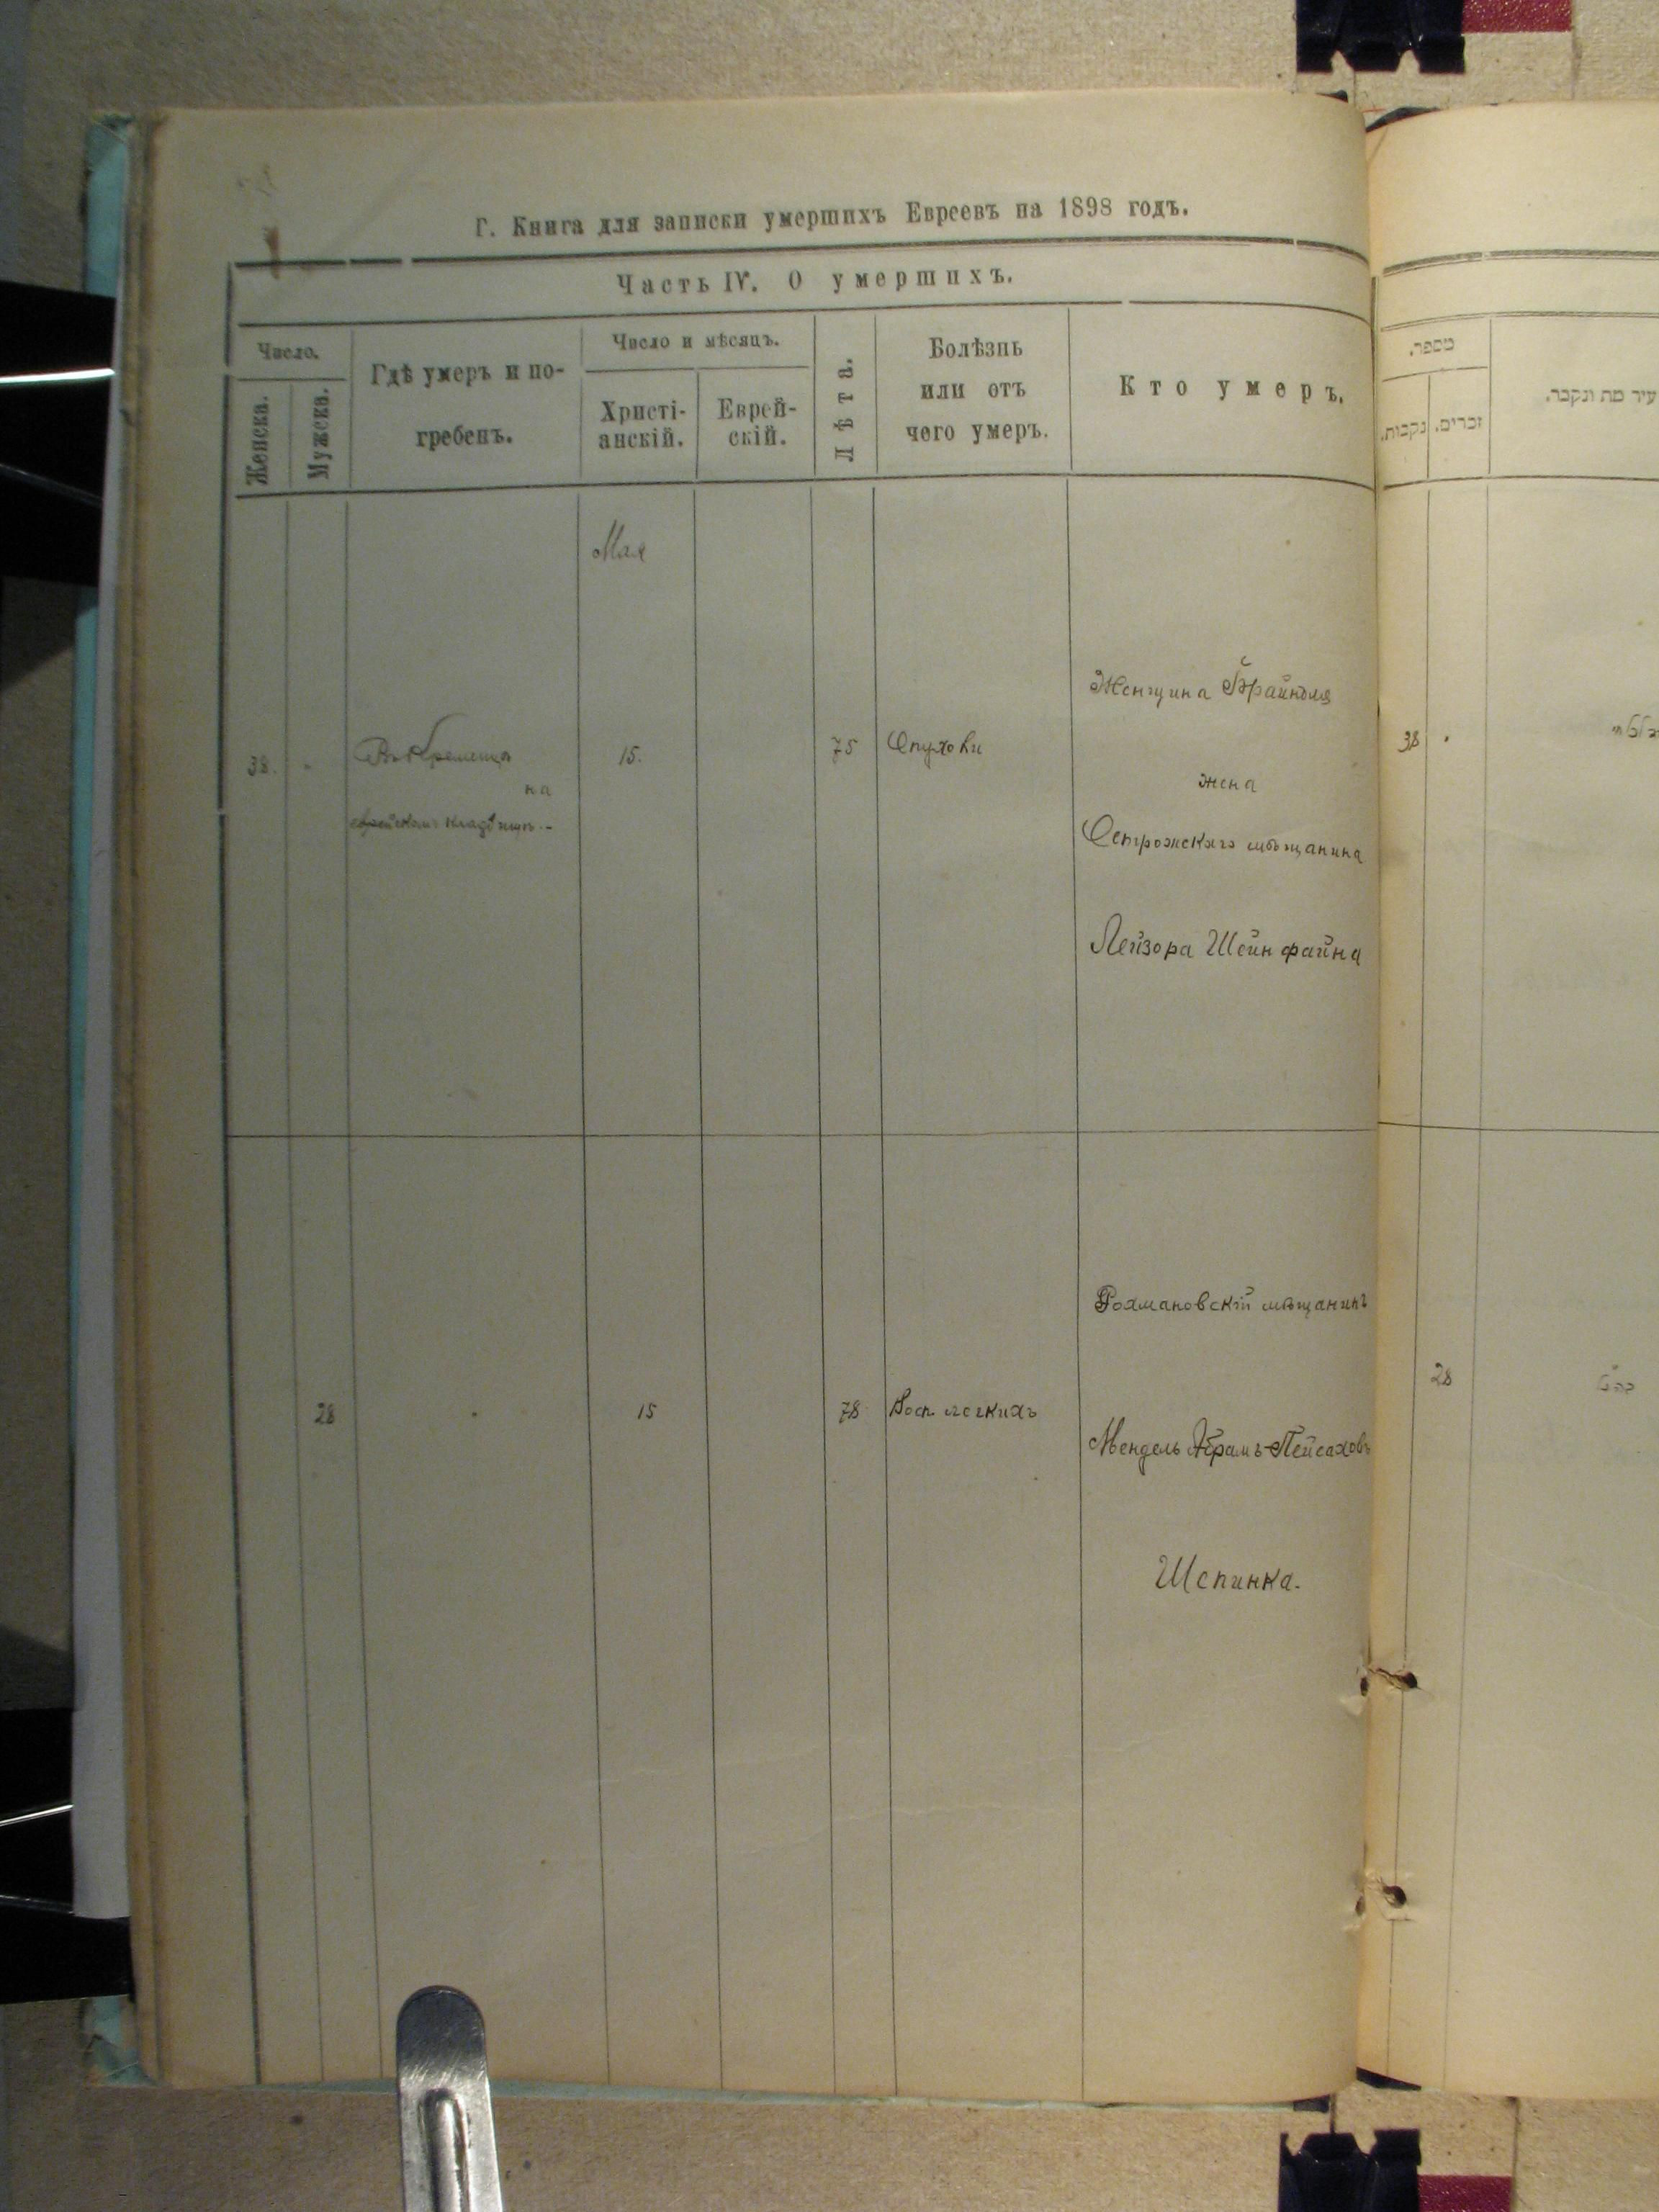 Г. Книга для записки умершихъ Евреевъ на 1898 годъ.
Часть IV. О умершихъ.
Число.
Женска.
Мужска.
Гдѣ умеръ и по-
гребенъ.
Число и мѣсяцъ.
Христі-
анскій.
Еврей-
скій.
Лѣта.
Болѣзнь
или отъ
чего умеръ.
Кто умеръ.
Мая
38.
Въ Кременцѣ
на
еврейскомъ кладбищѣ.-
15.
75
Опухови
Женщина Брайндля
жена
Острожскаго мѣщанина
Лейзора Шейнфайна
28
15
78
Восп. легкихъ
Рохмановскій мѣщанинъ
Мендель Абрамъ-Пейсаховъ
Шпинка.
מספר.
נקבות.
זכרים.
עיר מת ונקבר.
38
28